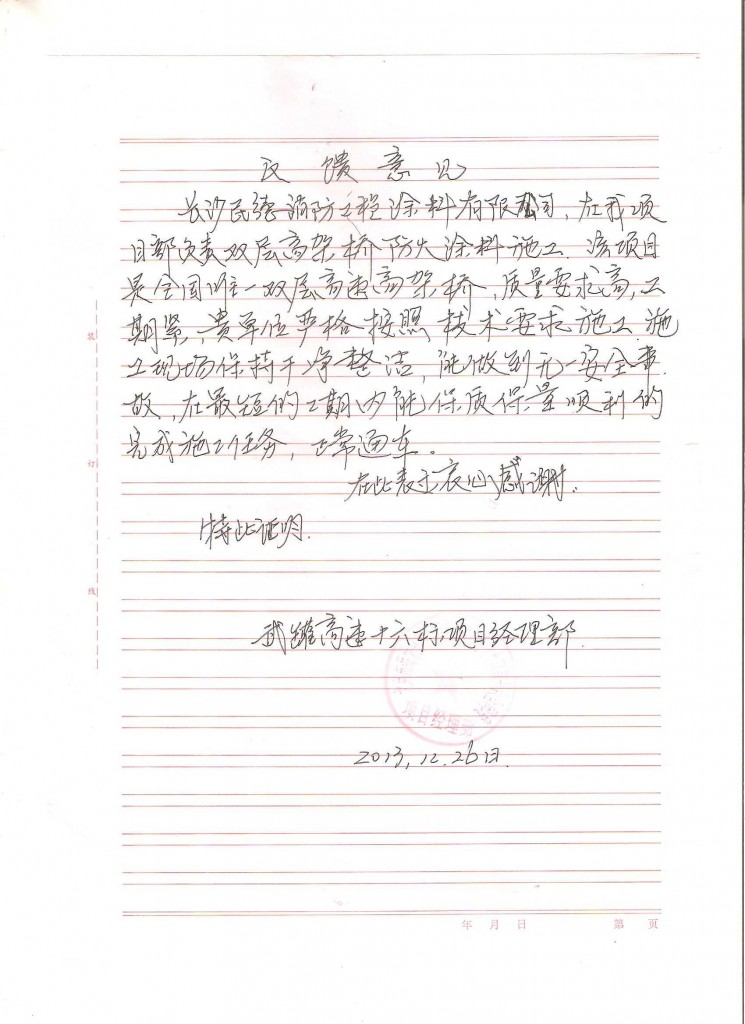 反馈意见
长沙民德消防工程涂料有限公司，在我项
目部负责双层高架桥防火涂料施工。该项目
是全国唯一双层高速高架桥，质量要求高，工
期紧，贵单位严格按照技术要求施工。施
工现场保持干净整洁，能做到无一安全事
故，在最短的工期内能保质保量顺利的
完成施工任务，正常通车。
在此表示衷心感谢。
特此证明。
武罐高速十六标项目经理部
项目经理部
2013,12.26日.
装
订
线
年 月 日
第 页